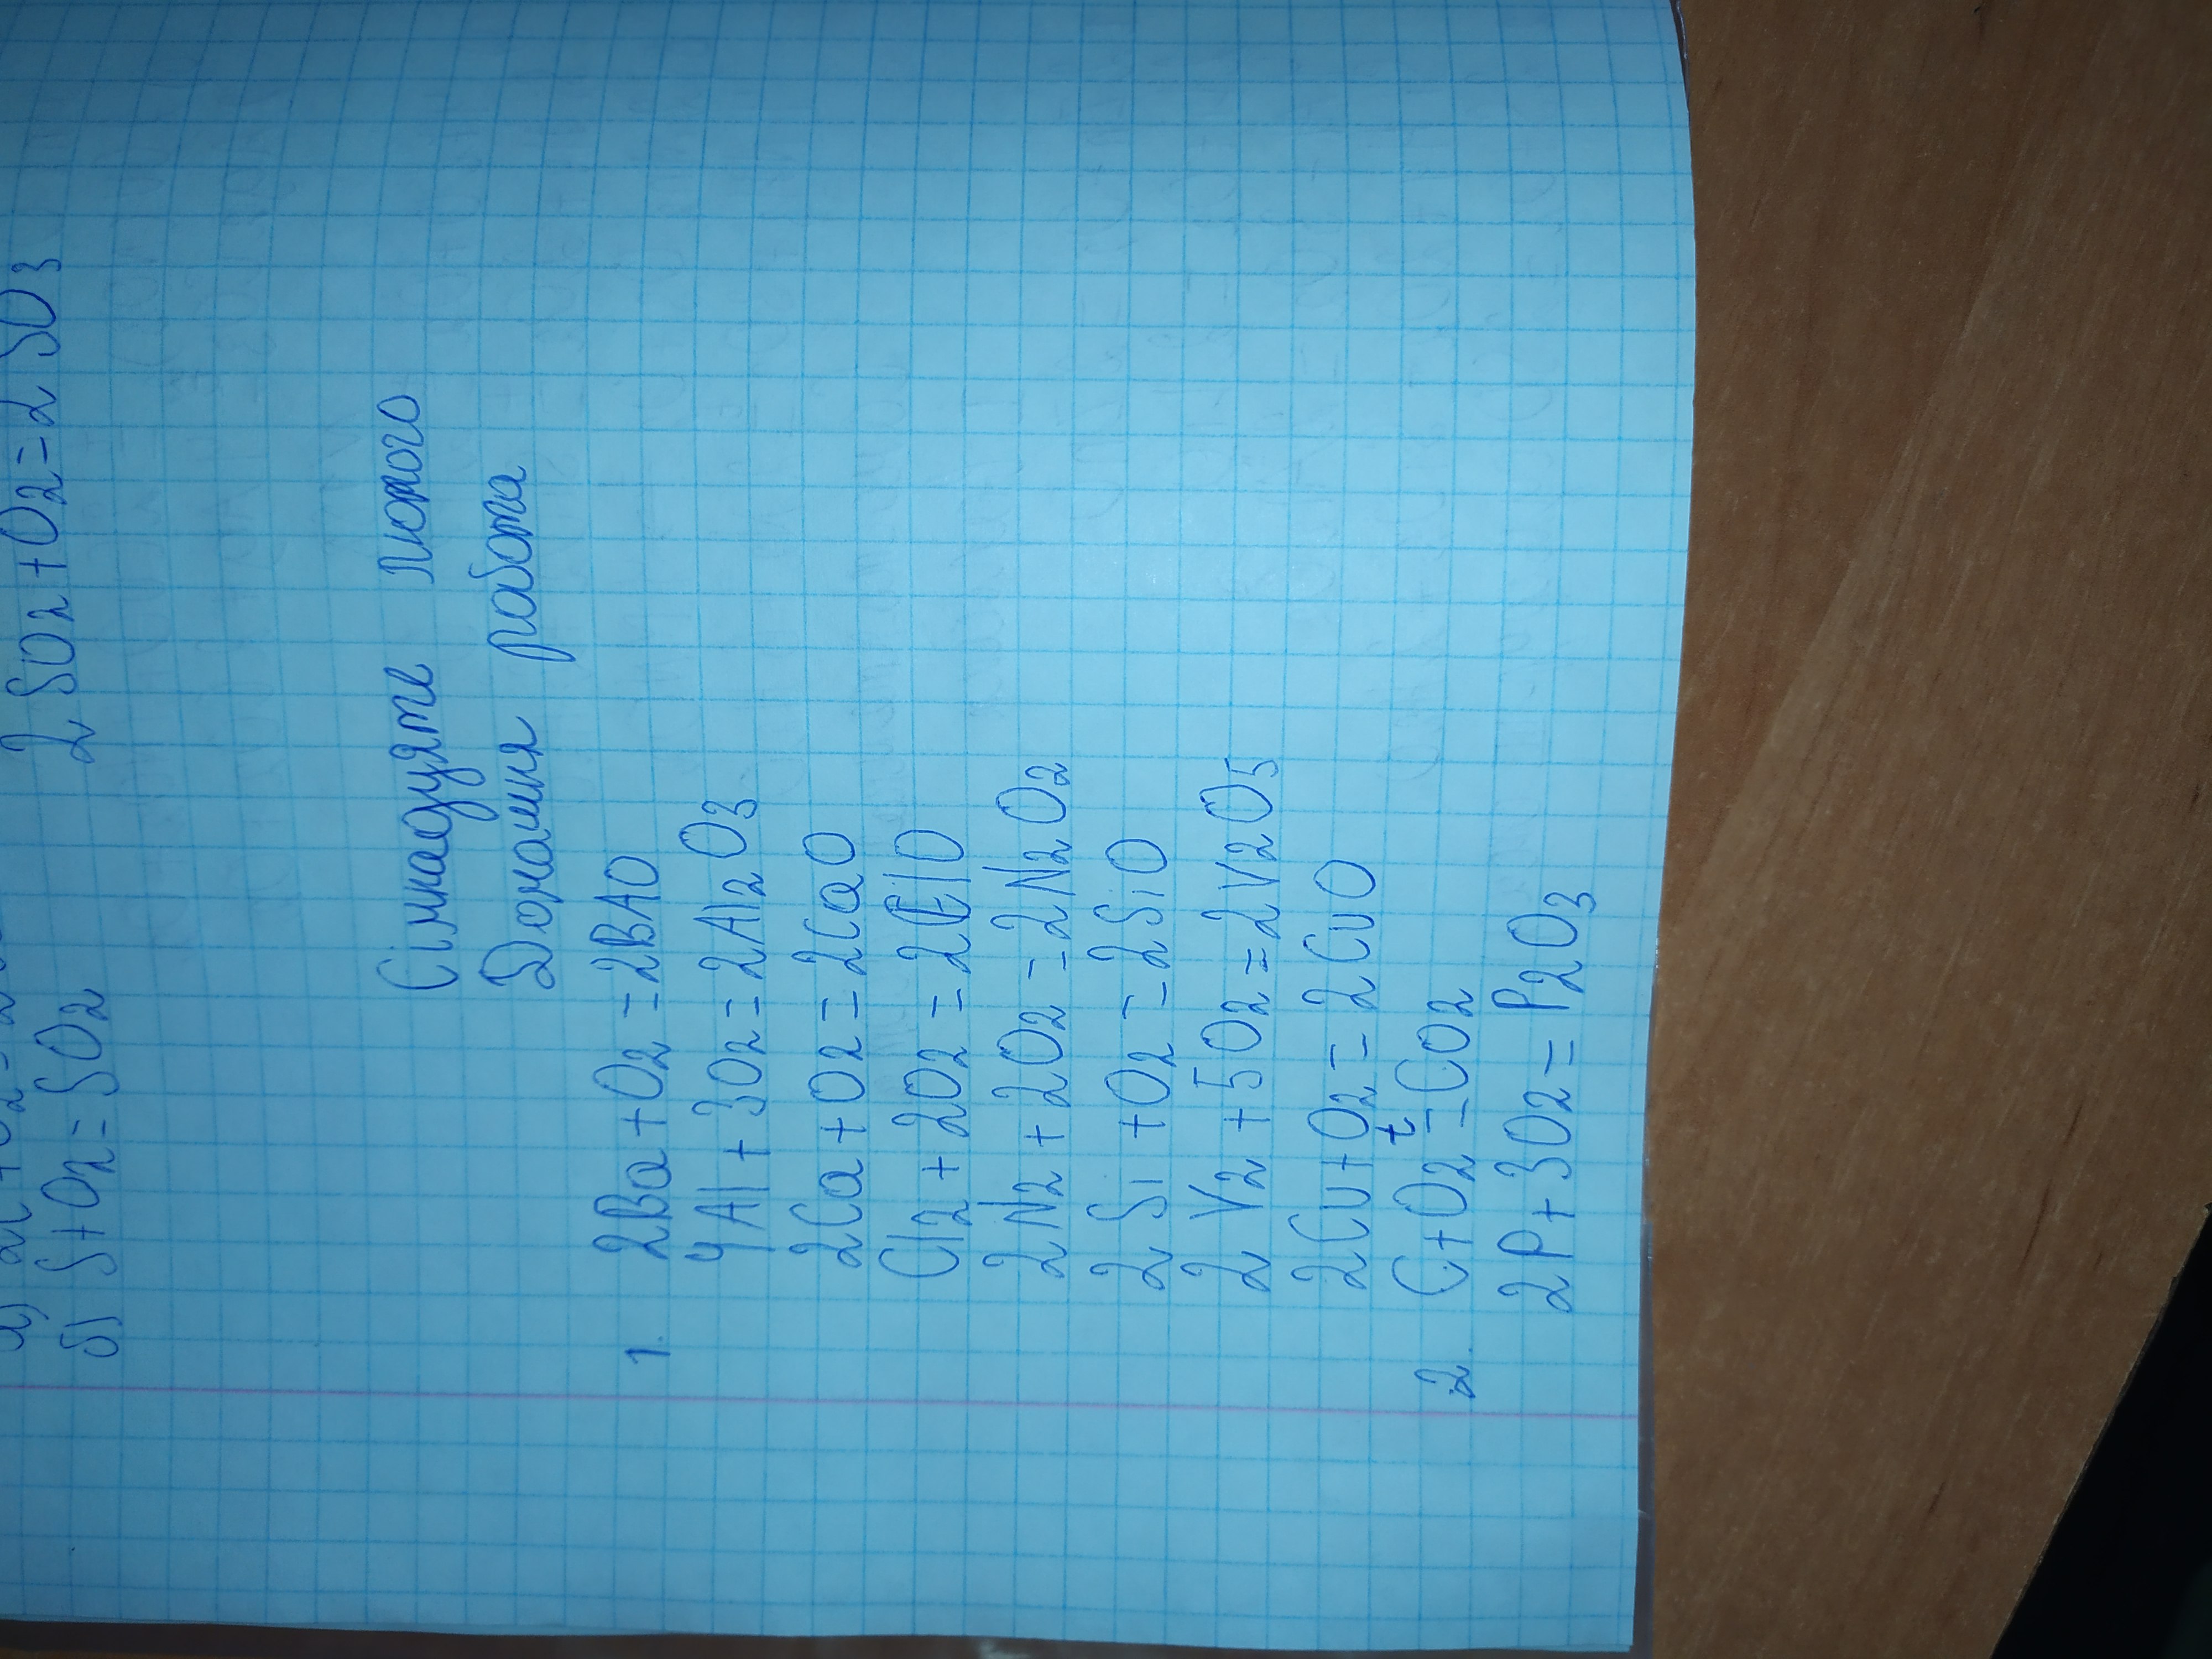 2 SO2 + O2 = 2 SO3
б) S + O2 = SO2
Сімнадцяте лютого
Домашня работа
1. 2Ba + O2 = 2BAO
4Al + 3O2 = 2Al2O3
2Ca + O2 = 2CaO
Cl2 + 2O2 = 2ClO
2N2 + 2O2 = 2N2O2
2 Si + O2 = 2SiO
2 V2 + 5O2 = 2V2O5
2Cu + O2 = 2CuO
2. C + O2 t = CO2
2P + 3O2 = P2O3